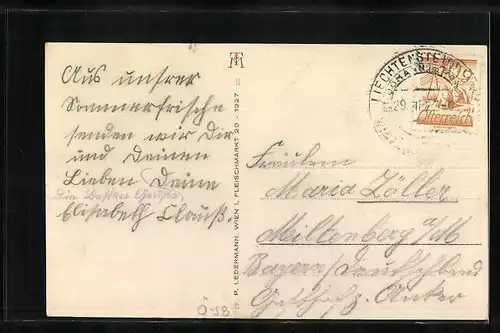 Aus unsrer
Sommerfrische
senden wir Dir
und Deinen
Lieben Deine
Die besten Grüße
Elisabeth Clauß.
P. LEDERMANN, WIEN I, FLEISCHMARKT 20 - 1927
LIECHTENSTEIN
29
Österreich
Fräulein
Maria Zöller
Miltenberg a/M
Bayern/Deutschland
Gasthof z. Anker
Ö-SB